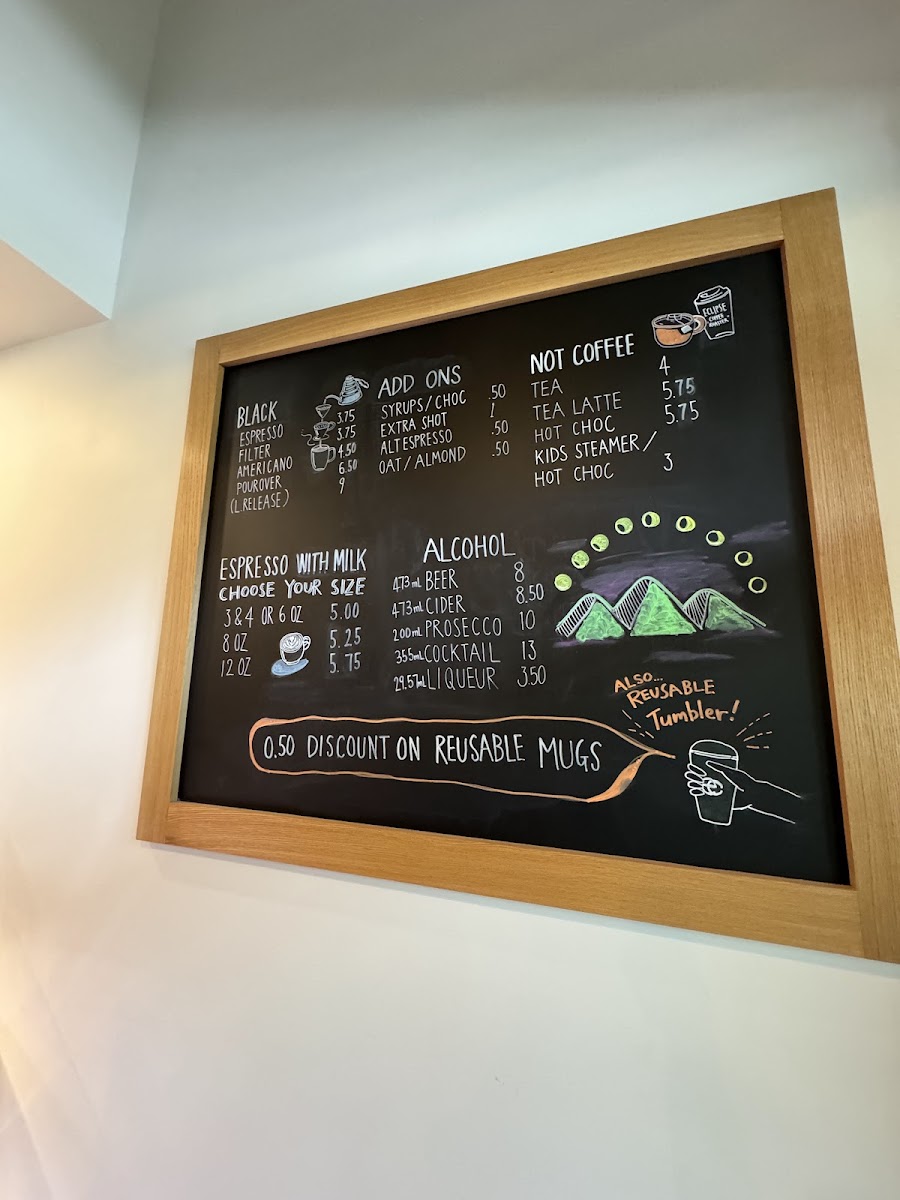 BLACK
ESPRESSO 3.75
FILTER 3.75
AMERICANO 4.50
POUROVER 6.50
(L.RELEASE) 9
ADD ONS
SYRUPS/CHOC .50
EXTRA SHOT 1
ALTESPRESSO .50
OAT/ALMOND .50
NOT COFFEE
TEA 4
TEA LATTE 5.75
HOT CHOC 5.75
KIDS STEAMER/
HOT CHOC 3
ECLIPSE
COFFEE
ROASTER
ESPRESSO WITH MILK
CHOOSE YOUR SIZE
3 & 4 OR 6 OZ 5.00
8 OZ 5.25
12 OZ 5.75
ALCOHOL
473mL BEER 8
473mL CIDER 8.50
200mL PROSECCO 10
355mL COCKTAIL 13
29.57mL LIQUEUR 3.50
ALSO...
REUSABLE
Tumbler!
0.50 DISCOUNT ON REUSABLE MUGS